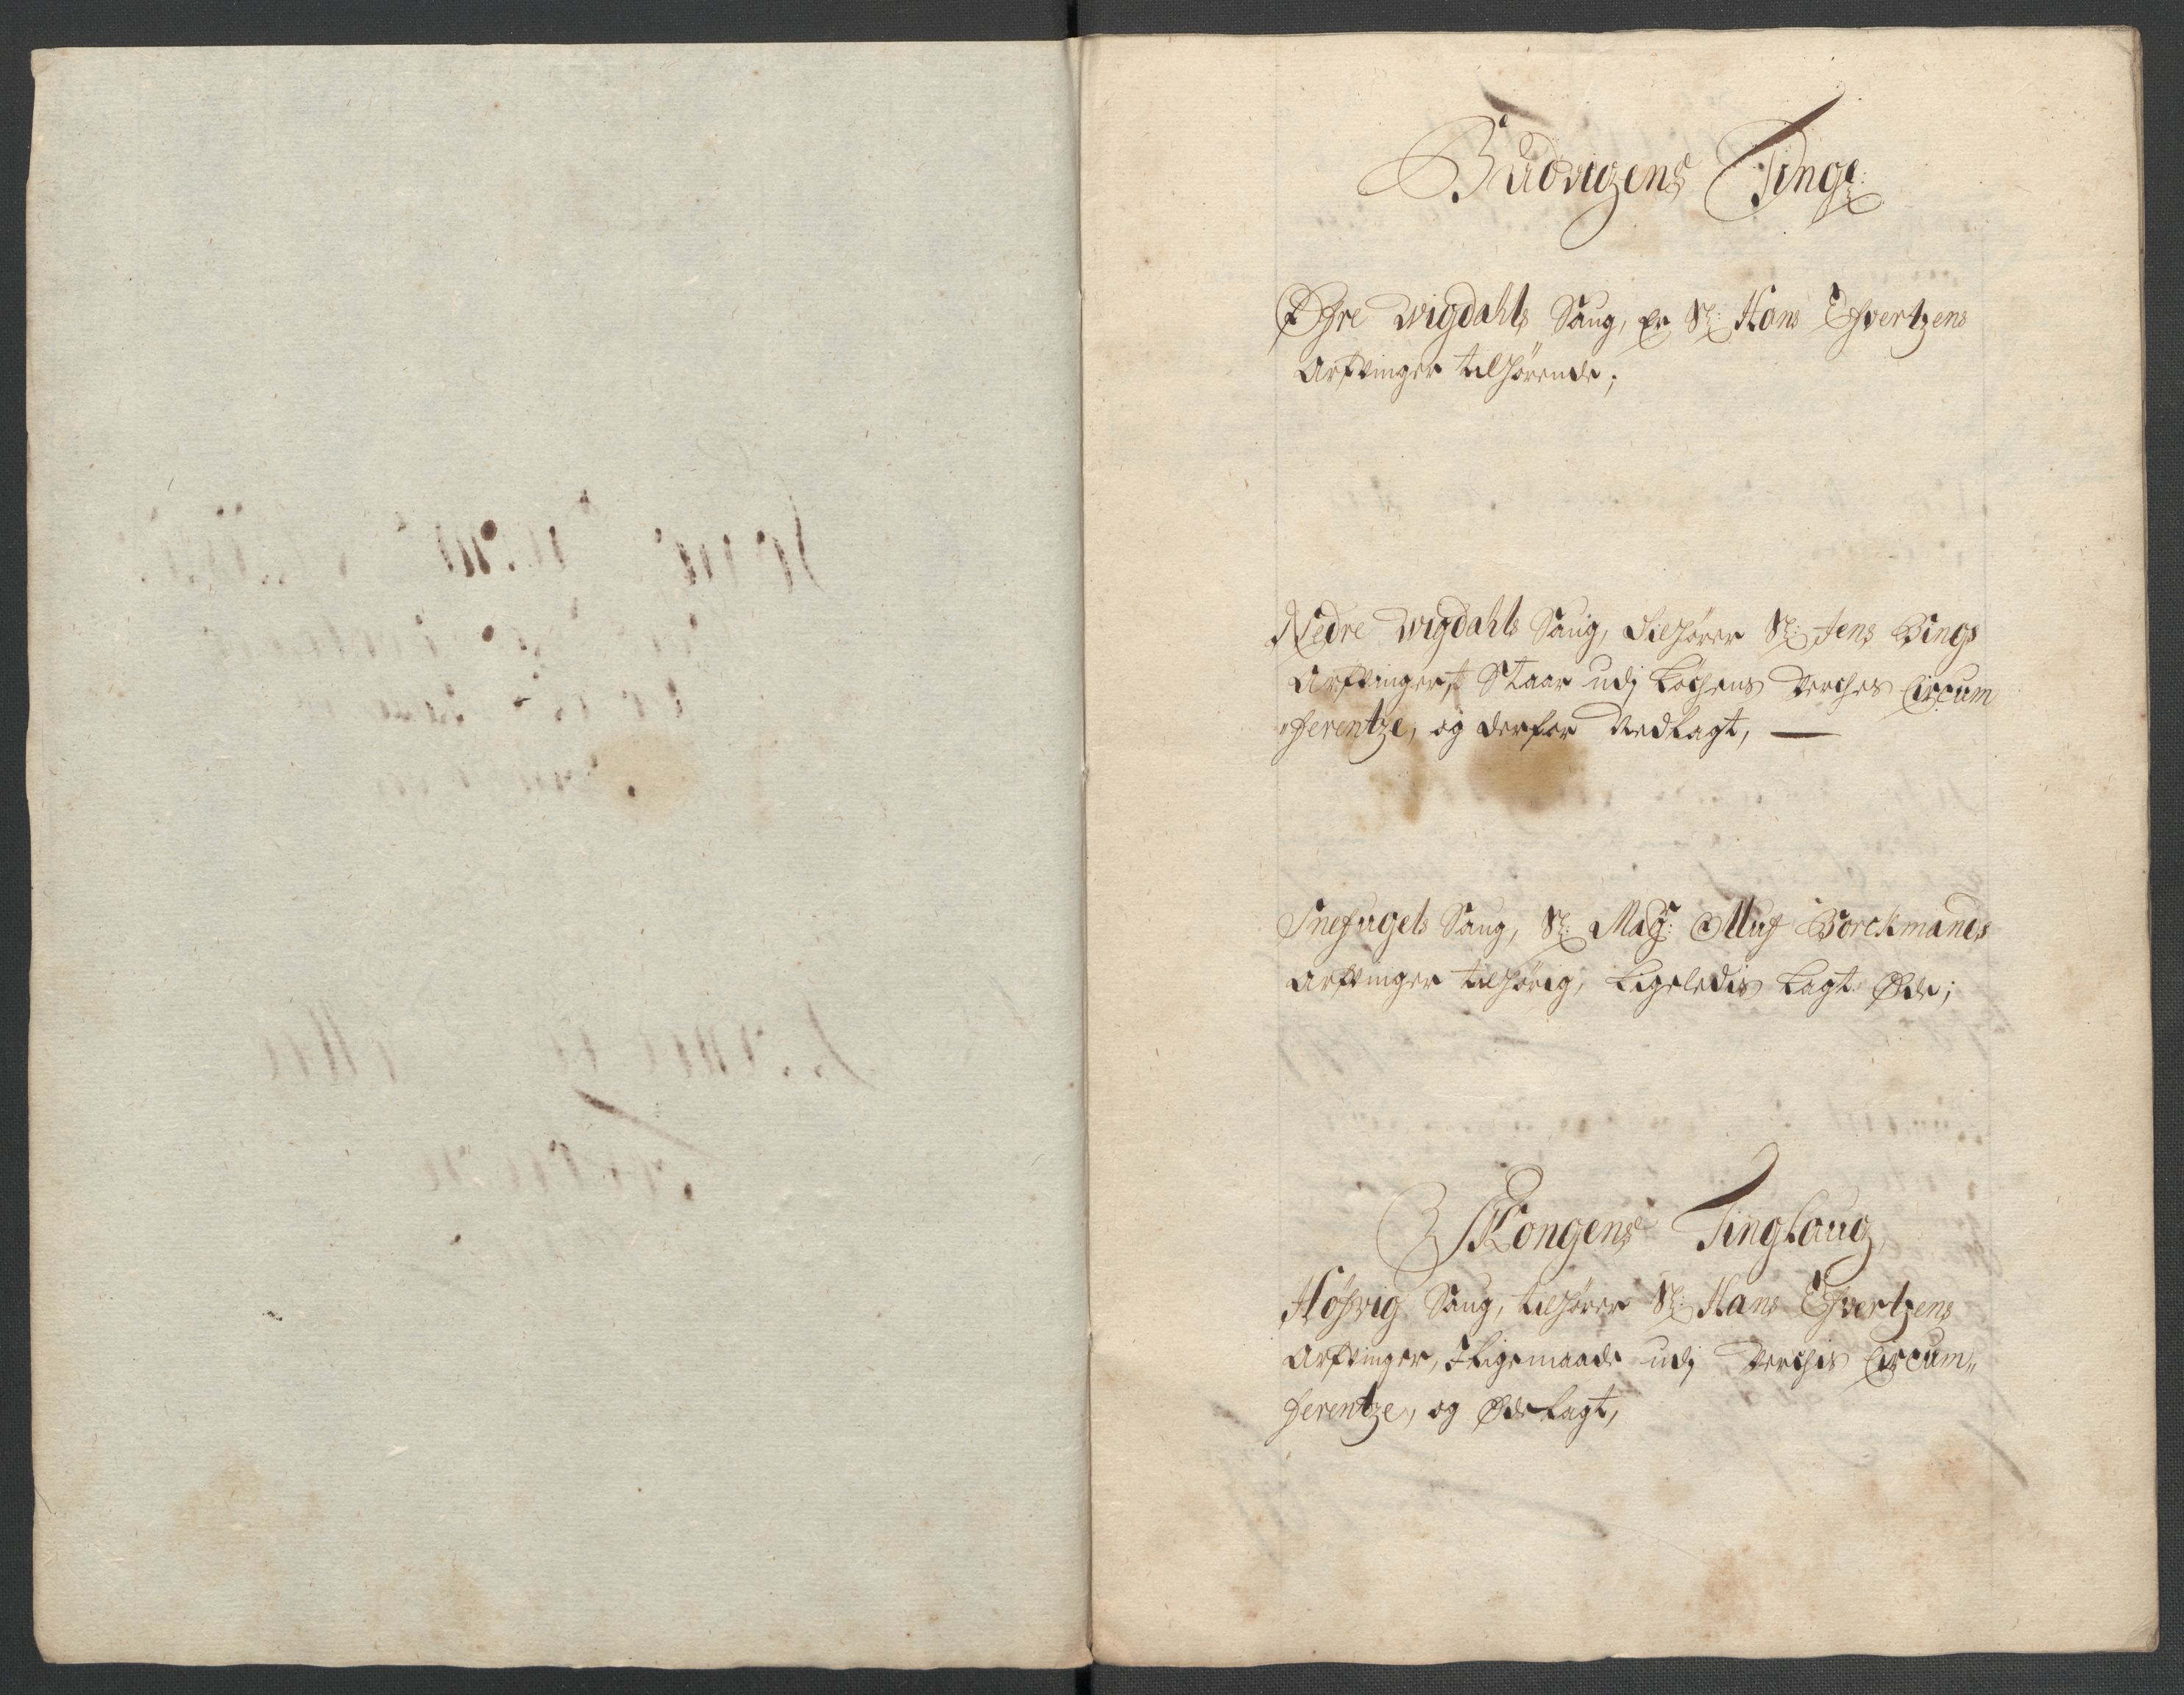 Budvigens Tingl:
Øfre Wigdahls Saug, er Sl: Hans Efvertzens
Arfvinger tilhörende;
Nedre Wigdahls Saug, tilhörer Sl: Jens Bings
Arfvinger, Staar udj Løchens Verches Circum
"ferentze, og derfor Nedlagt, —
Snefugels Saug, Sl: Mag: Olluf Borckmands
Arfvinger tilhörig, Ligeledis Lagt Øde;
Kongens Tinglaug
Høfsvig Saug, tilhörer Sl: Hans Efvertzens
Arfvinger, Jligemaade udj Verchis Circum„
ferentze, og Øde Lagt,